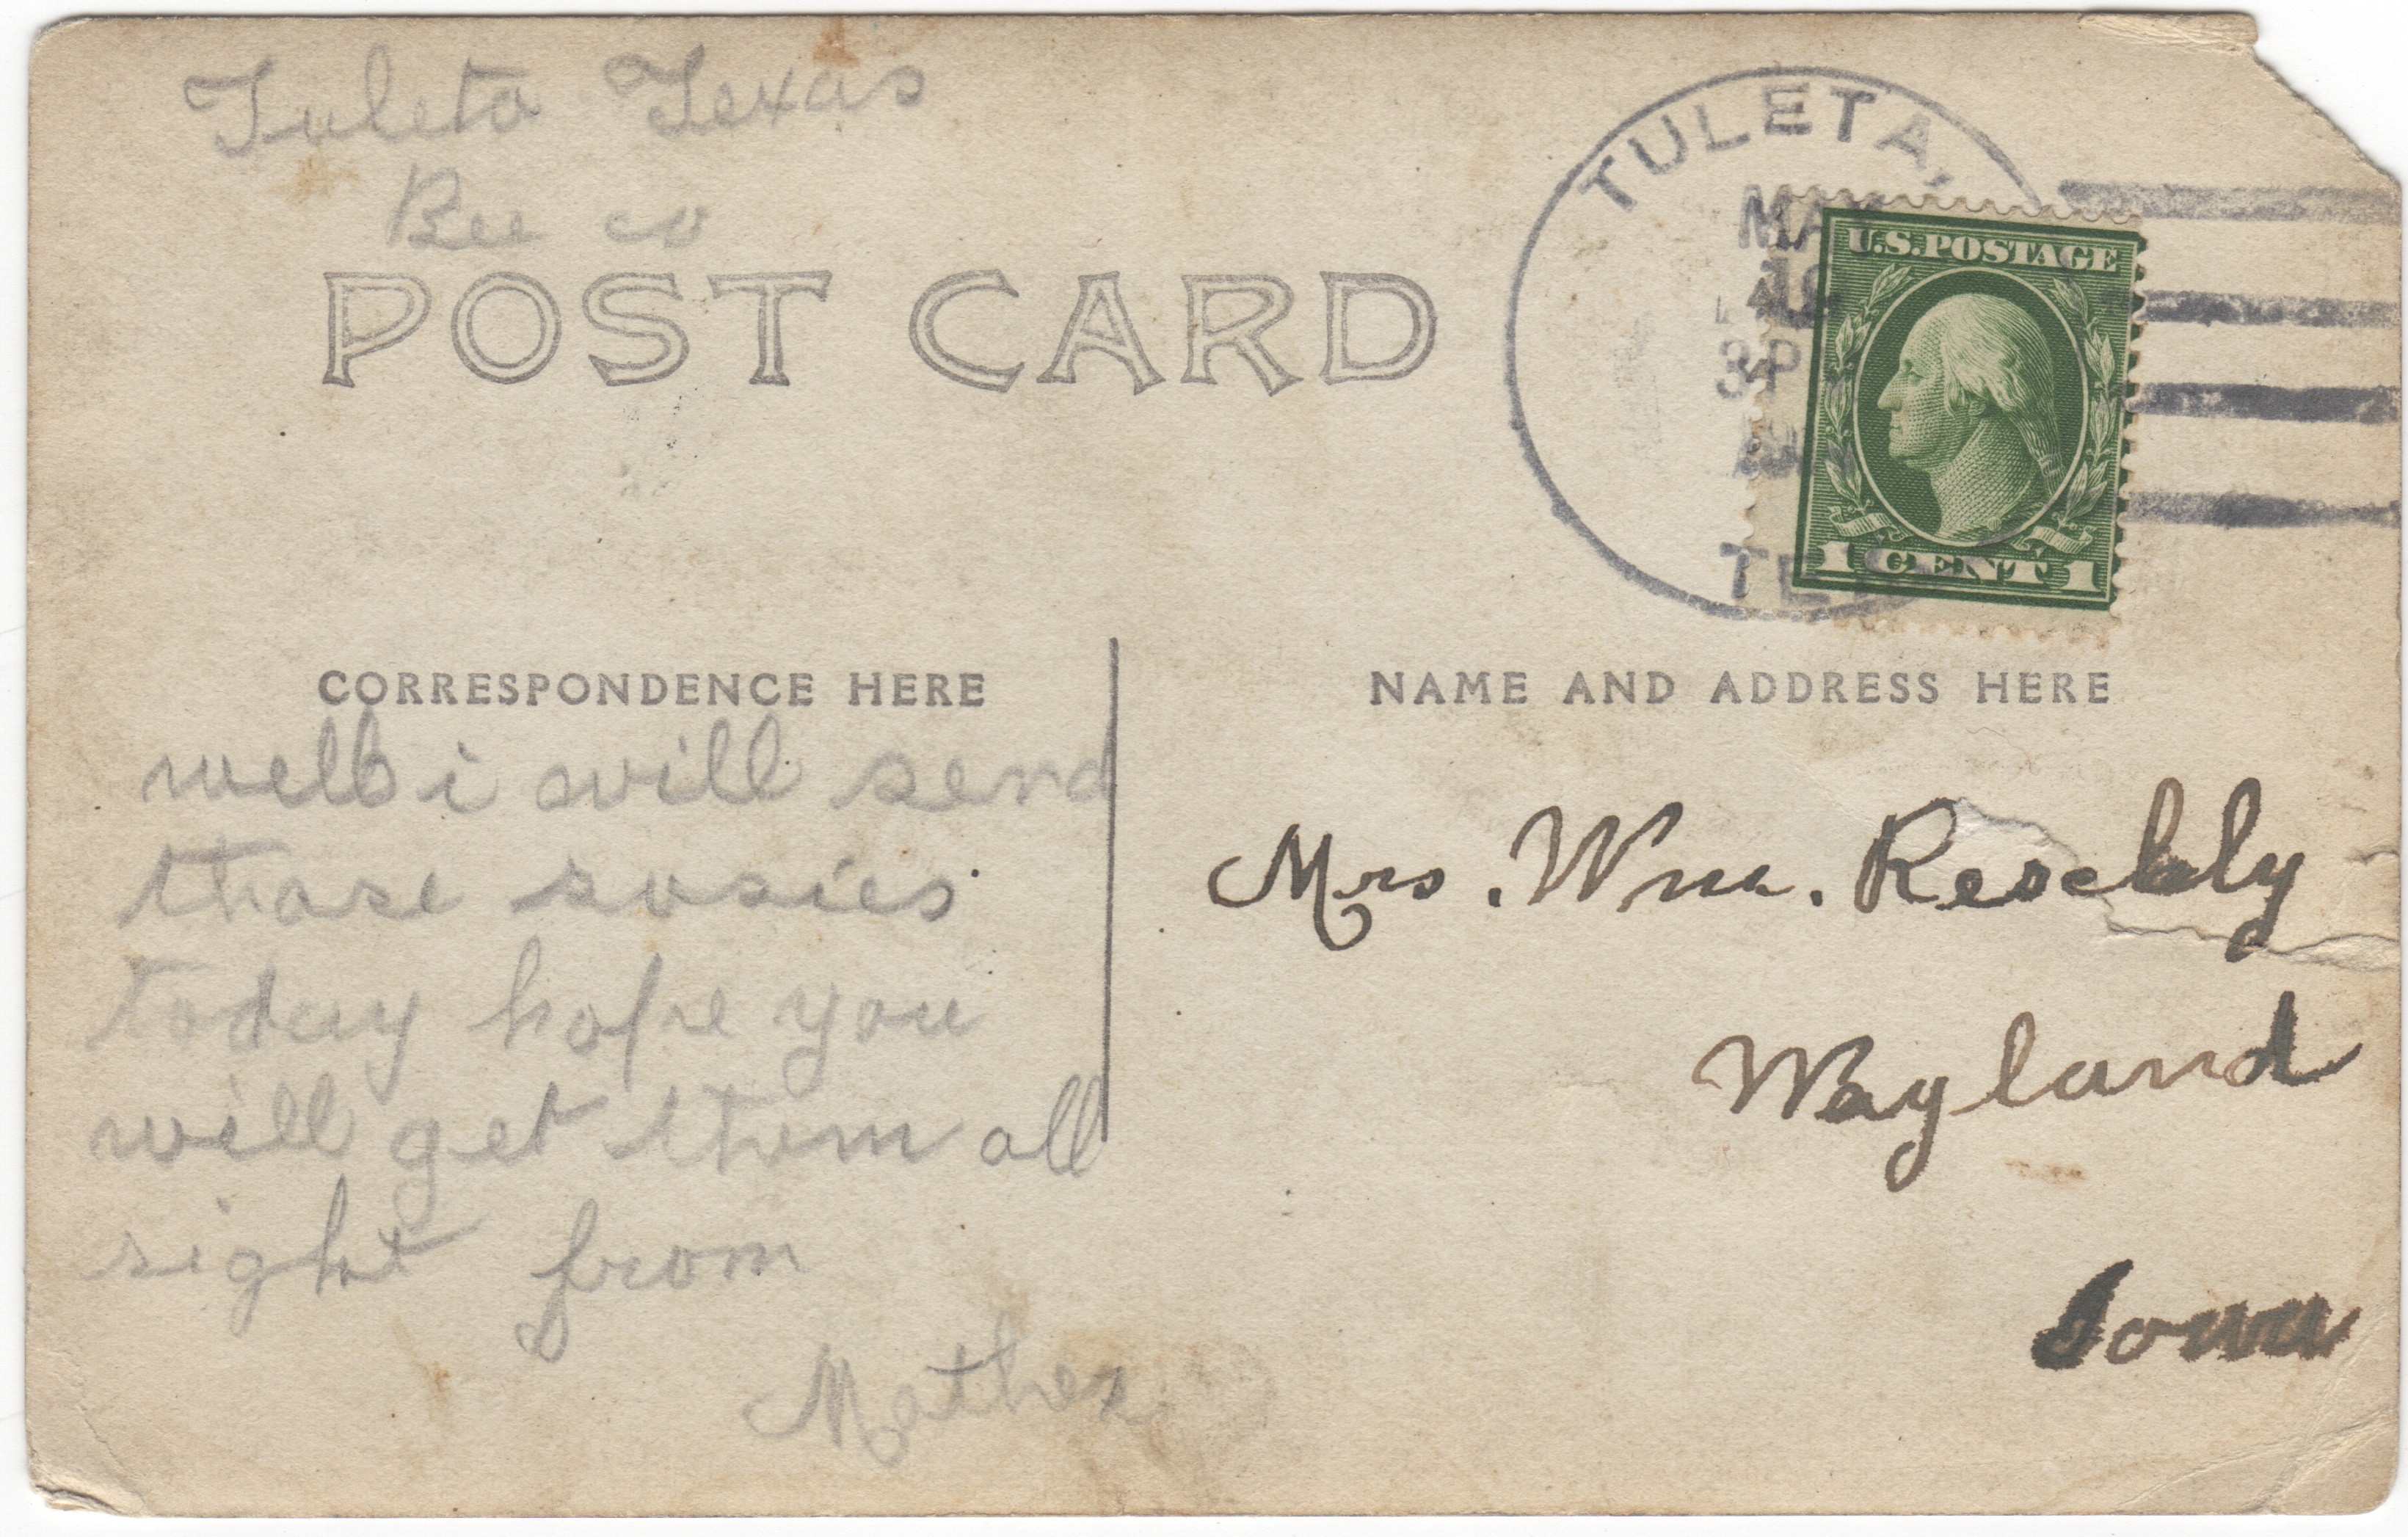 Tuleta Texas
Bee co
POST CARD
TULETA,
MAY
TEX
U.S. POSTAGE
1 CENT 1
CORRESPONDENCE HERE
well i will send
those rosies
today hope you
will get them all
right from
Mother
NAME AND ADDRESS HERE
Mrs. Wm. Reschly
Wayland
Iowa